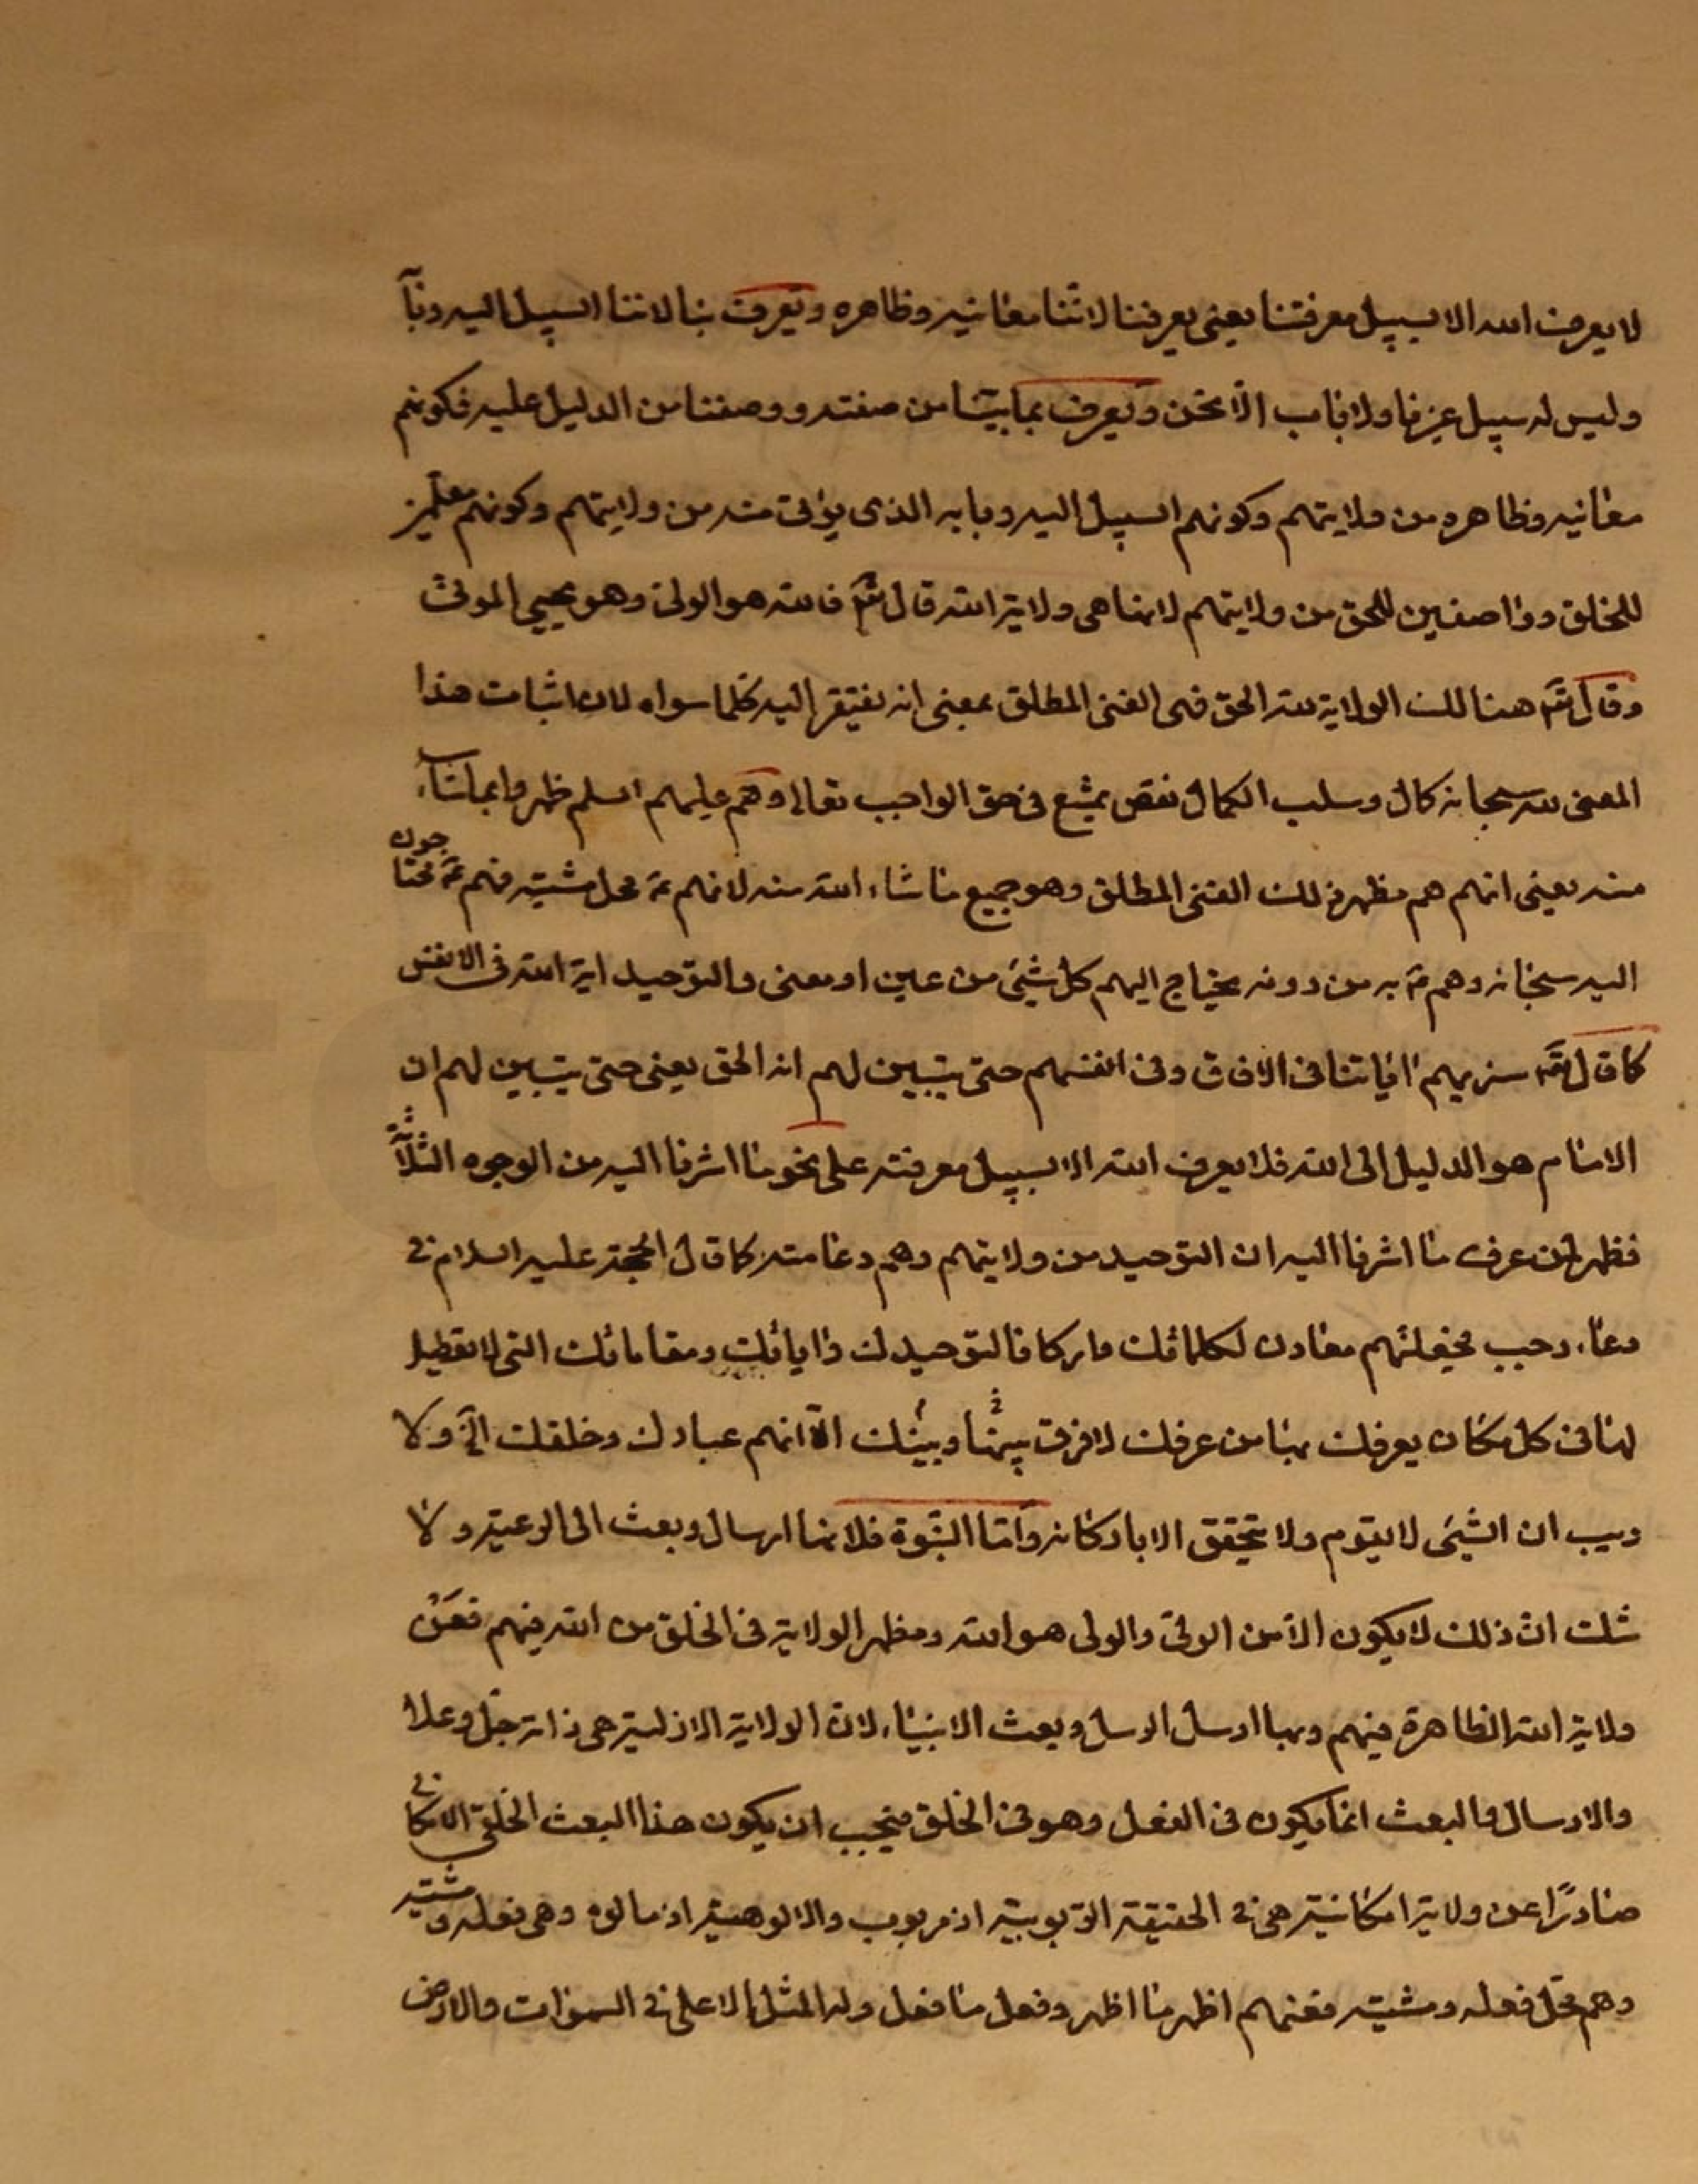 لا يعرف الله الا بسبيل معرفتنا يعنى يعرفنا لاننا معانيه وظاهره ويعرف بنا لاننا السبيل اليه وبابه
وليس له سبيل غيرنا ولا باب الا نحن ويعرف بما بيّنا من صفته ووصفنا من الدليل عليه فكونهم
معانيه وظاهره من ولايتهم وكونهم السبيل اليه وبابه الذى يؤتى منه من ولايتهم وكونهم معلمين
للخلق وواصفين للحق من ولايتهم لانها هى ولاية الله قال تع فالله هو الولى وهو يحيى الموتى
وقال تع هنالك الولاية لله الحق فهى الغنى المطلق بمعنى انه يفتقر اليه كلما سواه لان اثبات هذا
المعنى لله سبحانه كمال وسلب الكمال نقص يمتنع فى حق الواجب تعالى وهم عليهم السلم ظهروا بما شاء
منه يعنى انهم هم مظهر ذلك الغنى المطلق وهو جميع ما شاء الله منه لانهم ع محل مشيته فهم ع محتاجون
اليه سبحانه وهم ع به من دونه يحتاج اليهم كل شىء من عين او معنى والتوحيد اية الله فى الانفس
كما قال تع سنريهم اياتنا فى الافاق وفى انفسهم حتى يتبين لهم انه الحق يعنى حتى يتبين لهم ان
الامام هو الدليل الى الله فلا يعرف الله الا بسبيل معرفته على نحو ما اشرنا اليه من الوجوه الثلاثة
فظهر لمن عرف ما اشرنا اليه ان التوحيد من ولايتهم وهم دعامته كما قال الحجة عليه السلام فى
دعاء رجب فجعلتهم معادن لكلماتك واركانا لتوحيدك واياتك ومقاماتك التى لا تعطيل
لها فى كل مكان يعرفك بها من عرفك لا فرق بينها وبينك الا انهم عبادك وخلقك الخ ولا
ريب ان الشىء لا يقوم ولا يتحقق الا باركانه وامّا النبّوة فلانها ارسال وبعث الى الرعية ولا
شك ان ذلك لا يكون الا من الولى والولى هو الله ومظهر الولاية فى الخلق من الله فيهم فعن
ولاية الله الظاهرة فيهم وبها ارسل الرسل وبعث الانبياء لان الولاية الازلية هى ذاته جل وعلا
والارسال والبعث انما يكون فى الفعل وهو فى الخلق فيجب ان يكون هذا البعث الخلقى الامكانى
صادرًا عن ولاية امكانية هى فى الحقيقة الربوبية اذ مربوب والالوهية اذ مالوه وهى فعله ومشيته
وهم محل فعله ومشيته فعنهم اظهر ما اظهر وفعل ما فعل وله المثل الاعلى فى السموات والارض